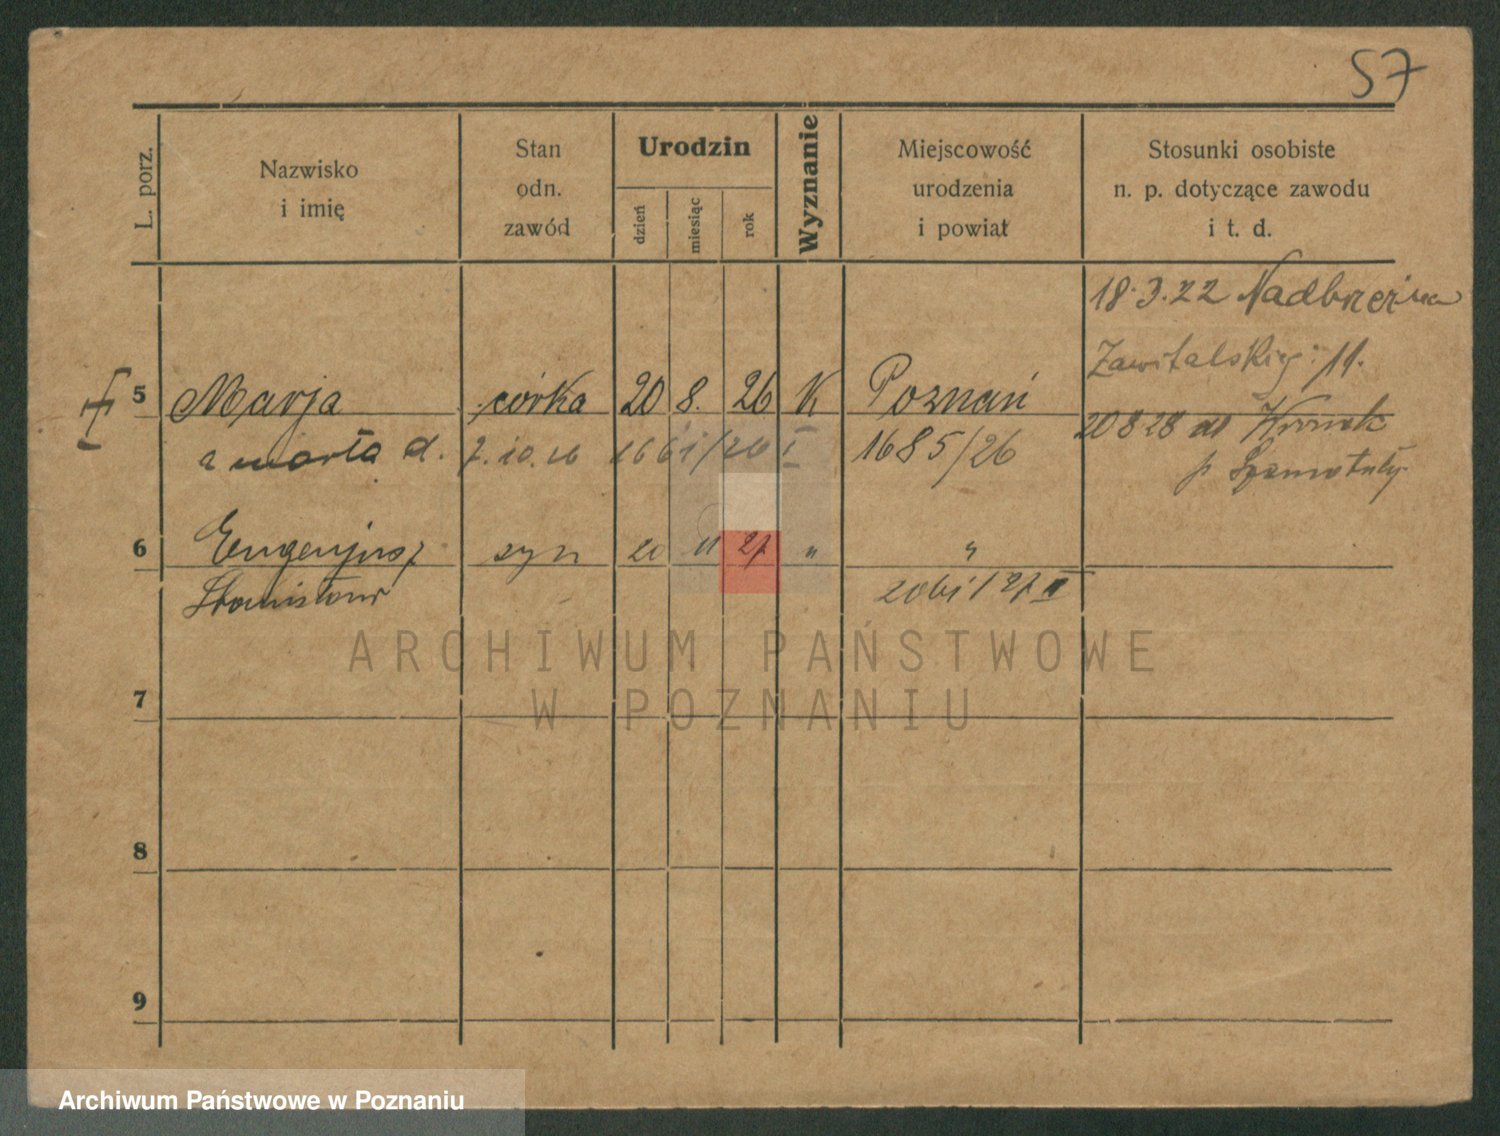 57
L. porz.
Nazwisko
i imię
Stan
odn.
zawód
Urodzin
dzień
miesiąc
rok
Wyznanie
Miejscowość
urodzenia
i powiat
Stosunki osobiste
n. p. dotyczące zawodu
i t. d.
18.3.22
11.
5 Marja córka 20 8. 26 K Poznań
20 8 28
zmarła d. 7.10.26 1661/26 I 1685/26
p Szamotuły
6 Eugenjusz syn 20 11 27 " "
Stanisław
ARCHIWUM PAŃSTWOWE
W POZNANIU
7
8
9
Archiwum Państwowe w Poznaniu